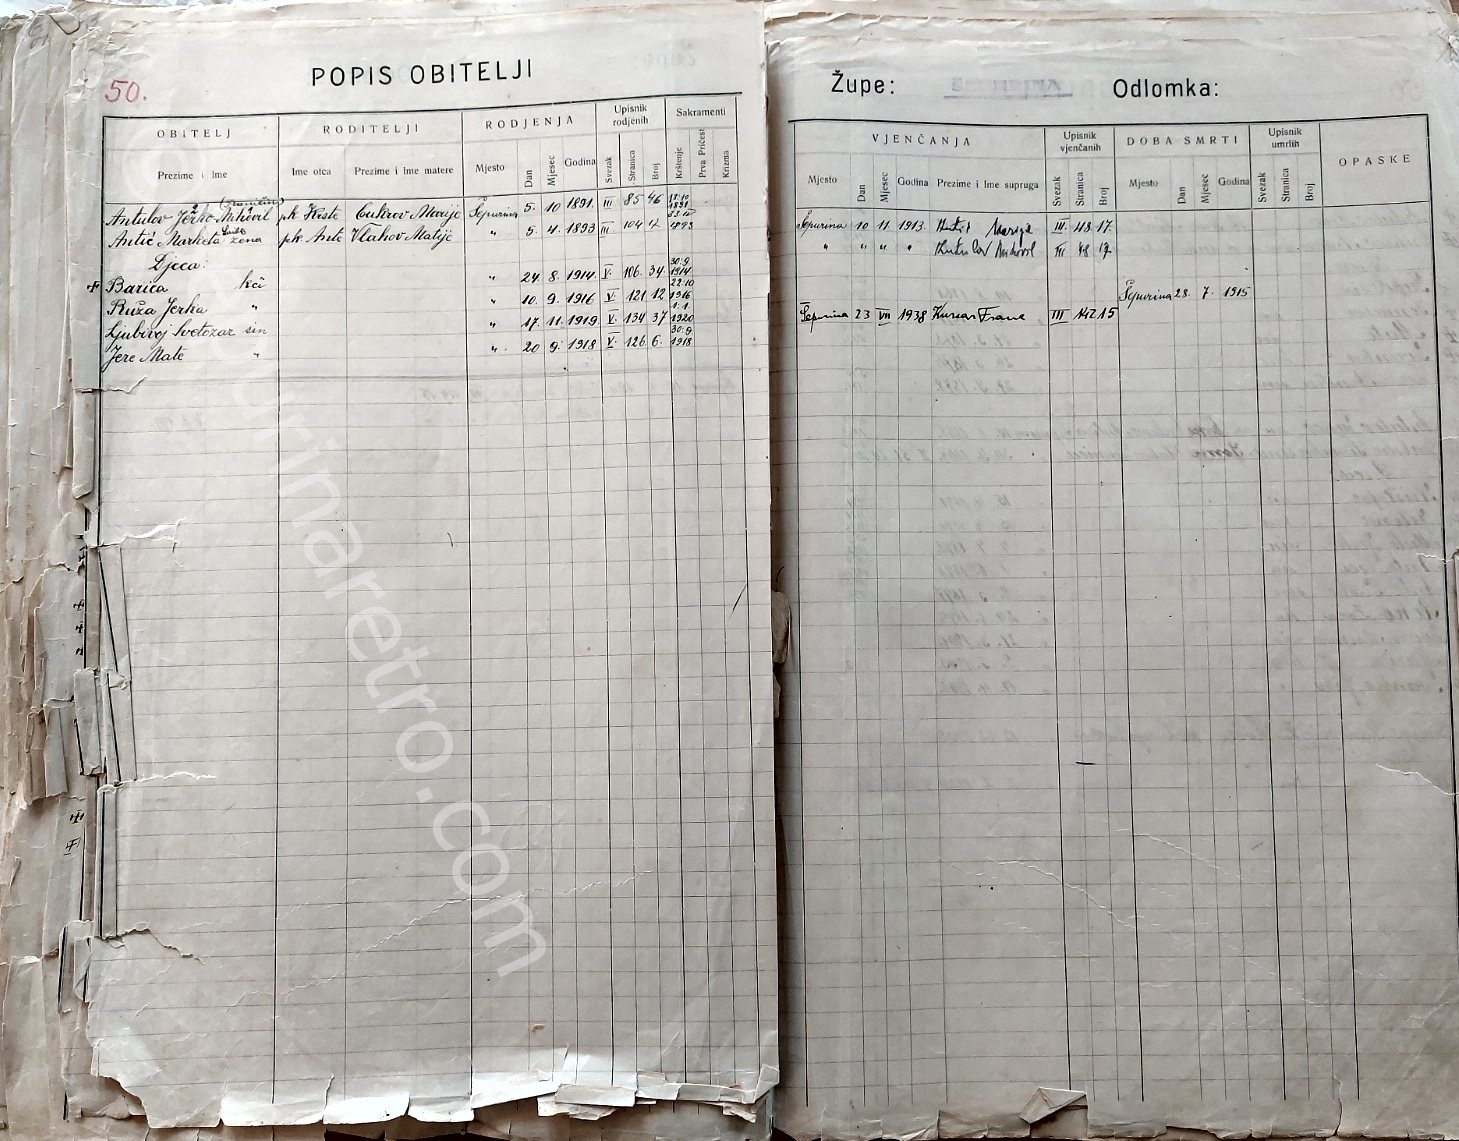 50.
POPIS OBITELJI
OBITELJ RODITELJI RODJENJA Upisnik rodjenih Sakramenti
Prezime i Ime Ime otca Prezime i Ime matere Mjesto Dan Mjesec Godina Svezak Stranica Broj Krštenje Prva Pričest Krizma
Antulov Jerko Mihovil pk Krste Cukrov Marije Šepurina 5. 10 1891. III 85 46 17.10 1891
Antić Marketa žena pk Ante Vlahov Matije " 5. 4. 1893 III 104 17 23. 1893
Djeca:
Barica kći " 24. 8. 1914. V. 106. 34. 30.9. 1914
Ruža Jerka " " 10. 9. 1916 V. 121. 12 22.10 1916
Ljubivoj Svetozar sin " 17. 11. 1919. V. 134 37 1.1. 1920
Jere Mate " " 20 9. 1918 V. 126. 6. 30.9. 1918
Župe: Odlomka:
VJENČANJA Upisnik vjenčanih DOBA SMRTI Upisnik umrlih OPASKE
Mjesto Dan Mjesec Godina Prezime i Ime supruga Svezak Stranica Broj Mjesto Dan Mjesec Godina Svezak Stranica Broj
Šepurina 10 11. 1913. Marija III. 48. 17.
" " " " III 48 17
Šepurina 28. 7. 1915
Šepurina 23 VII 1938 Kursar Frane III 142 15
©sepurinaretro.com